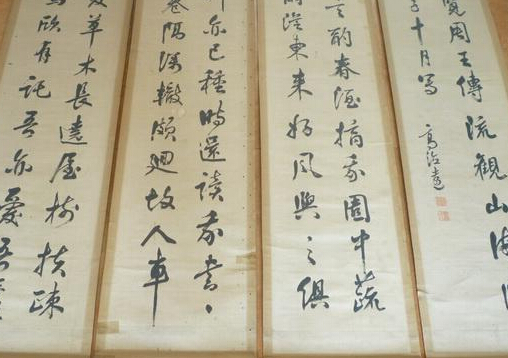 草木長遶屋樹扶疎
欣有託吾亦愛吾
亦已種時還讀我書
巷隔深轍頗迴故人車
酌春酒摘我園中蔬
雨從東來好風與之俱
覽周王傳流観山海
十月写